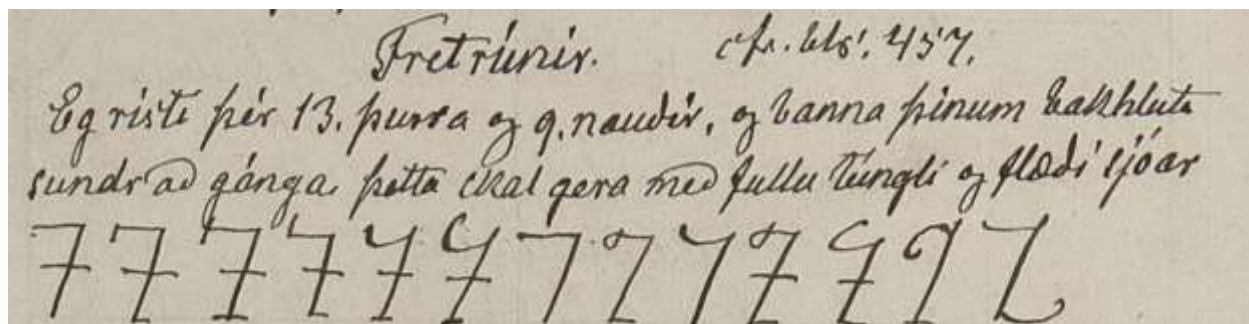 Fretrúnir. cfr. bls. 457.
Eg risti þér 13. þussa og 9. nauðir, og banna þinum bakhluta
sundr að gánga. þetta skal gera með fullu túngli og flæði sjóar